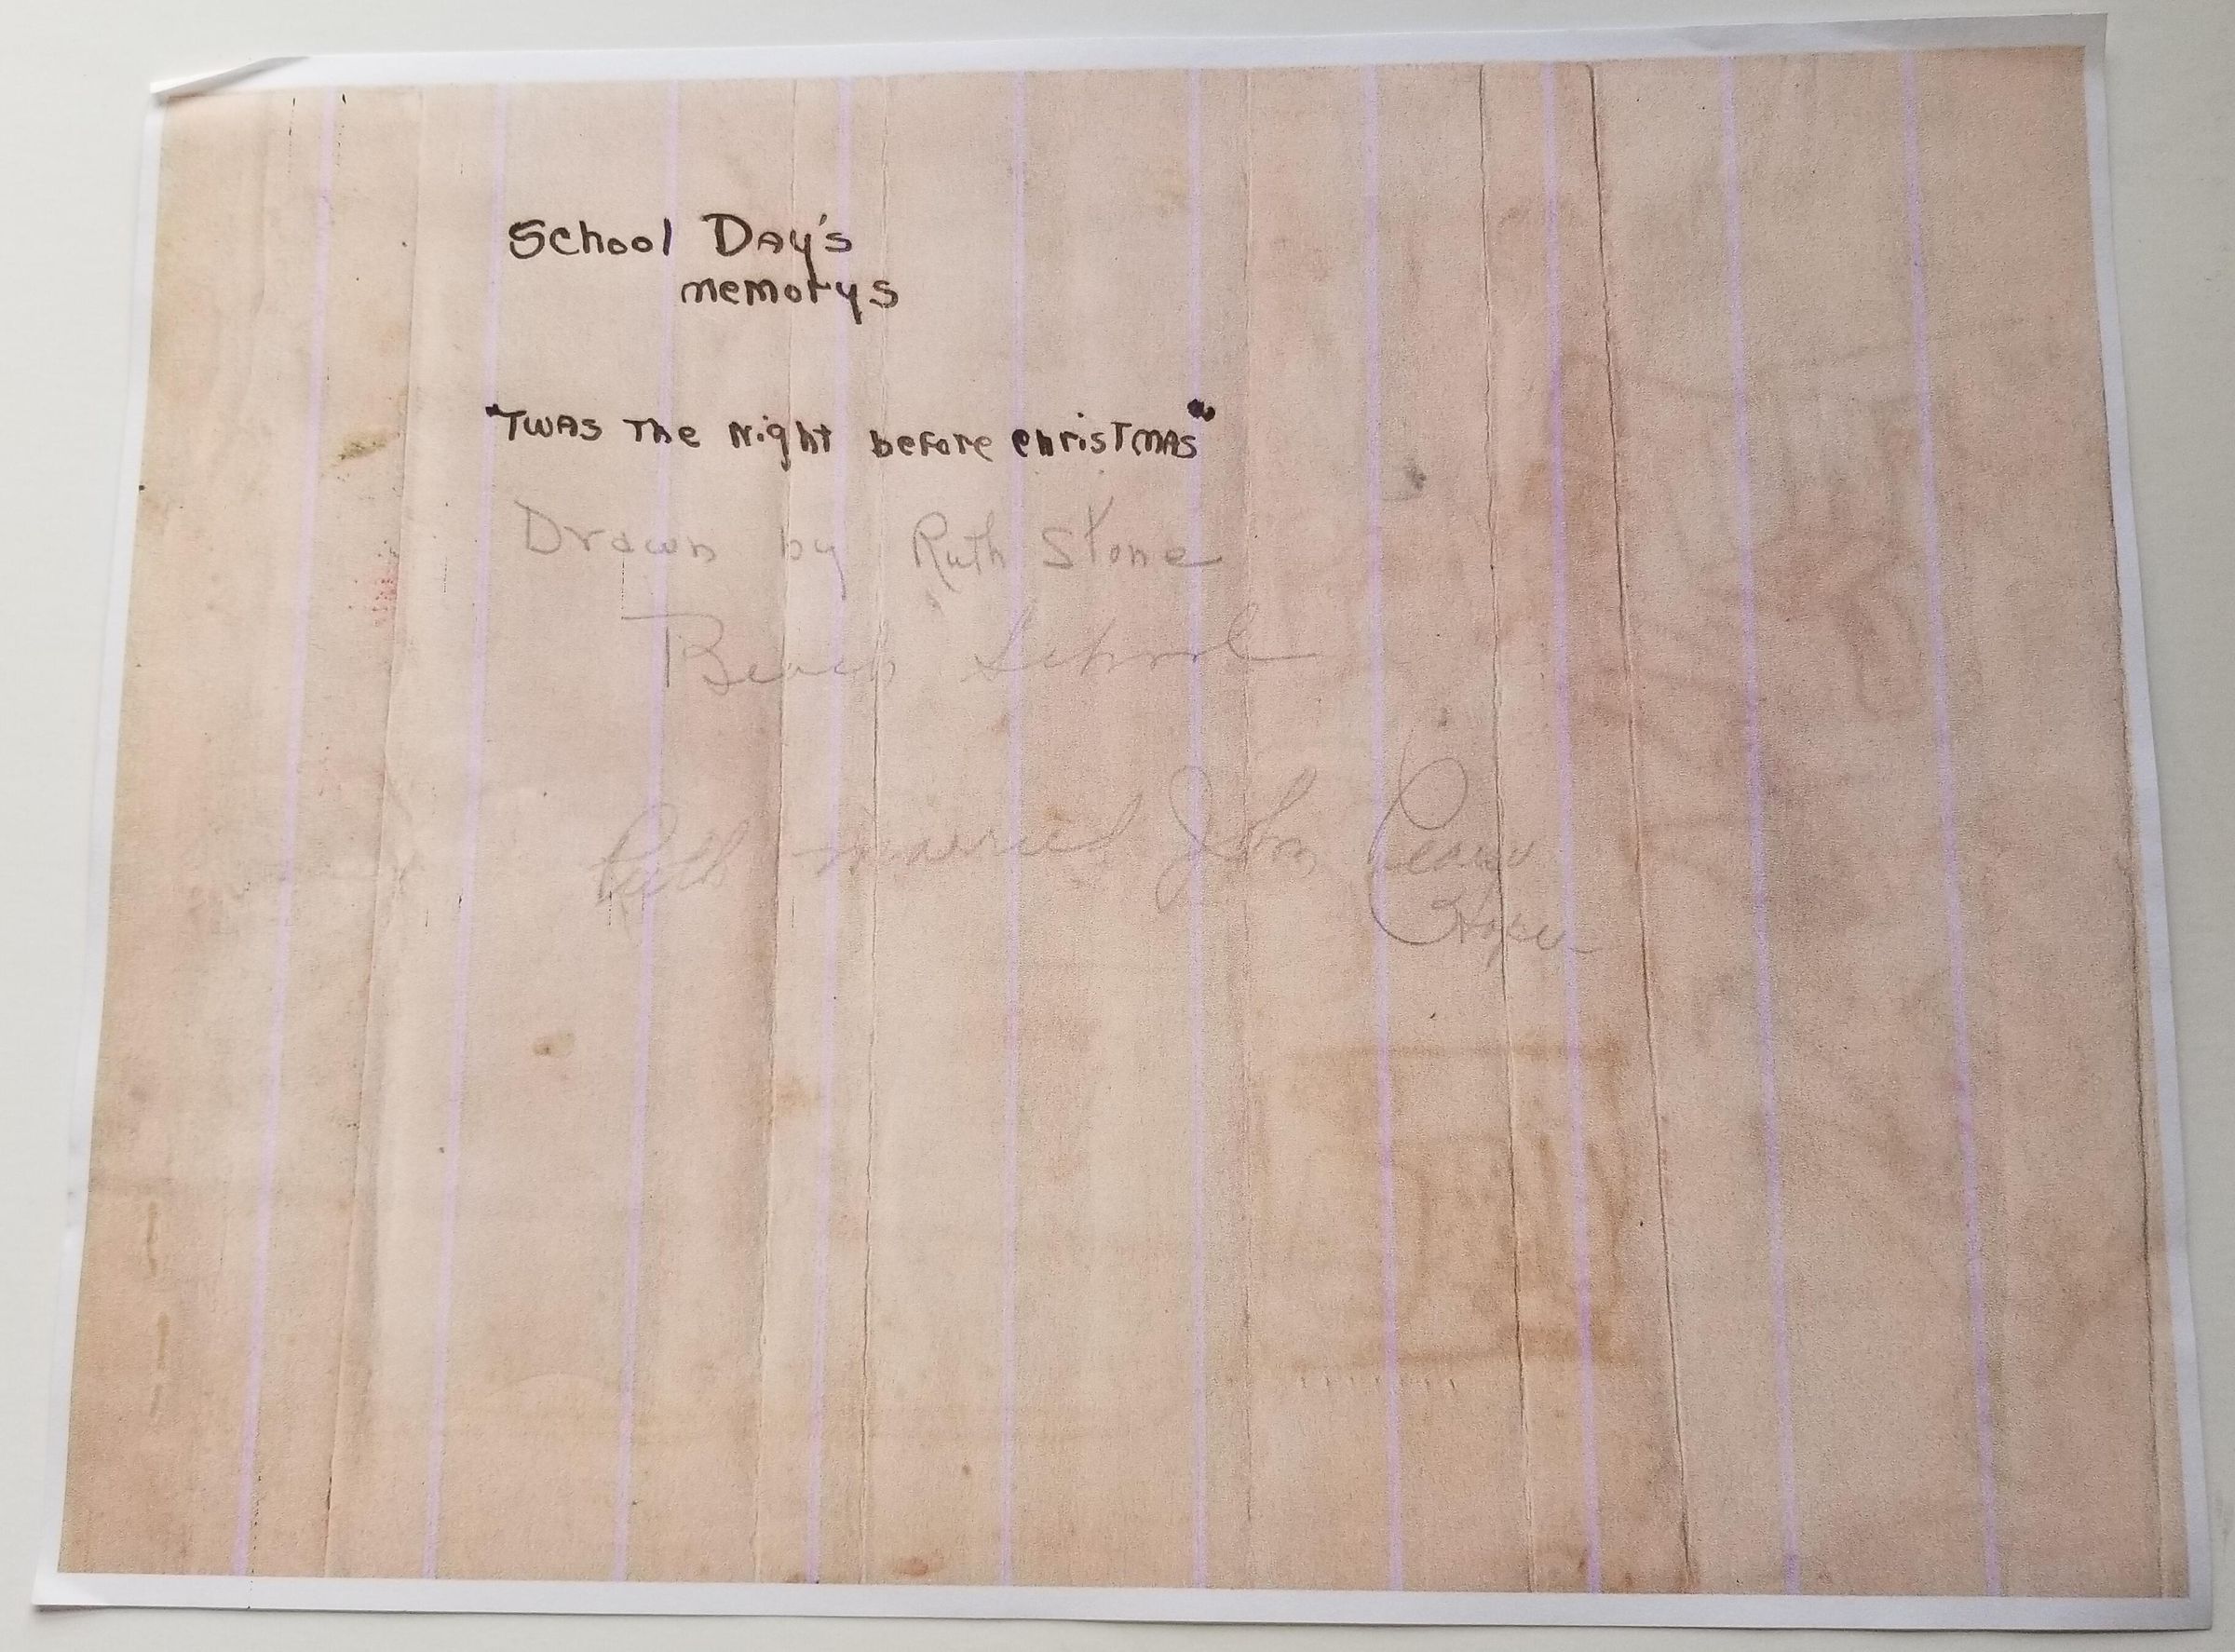 School Day's
memorys
"Twas The Night before christmas"
Drawn by Ruth Stone
Beach School
Ruth married John Perry